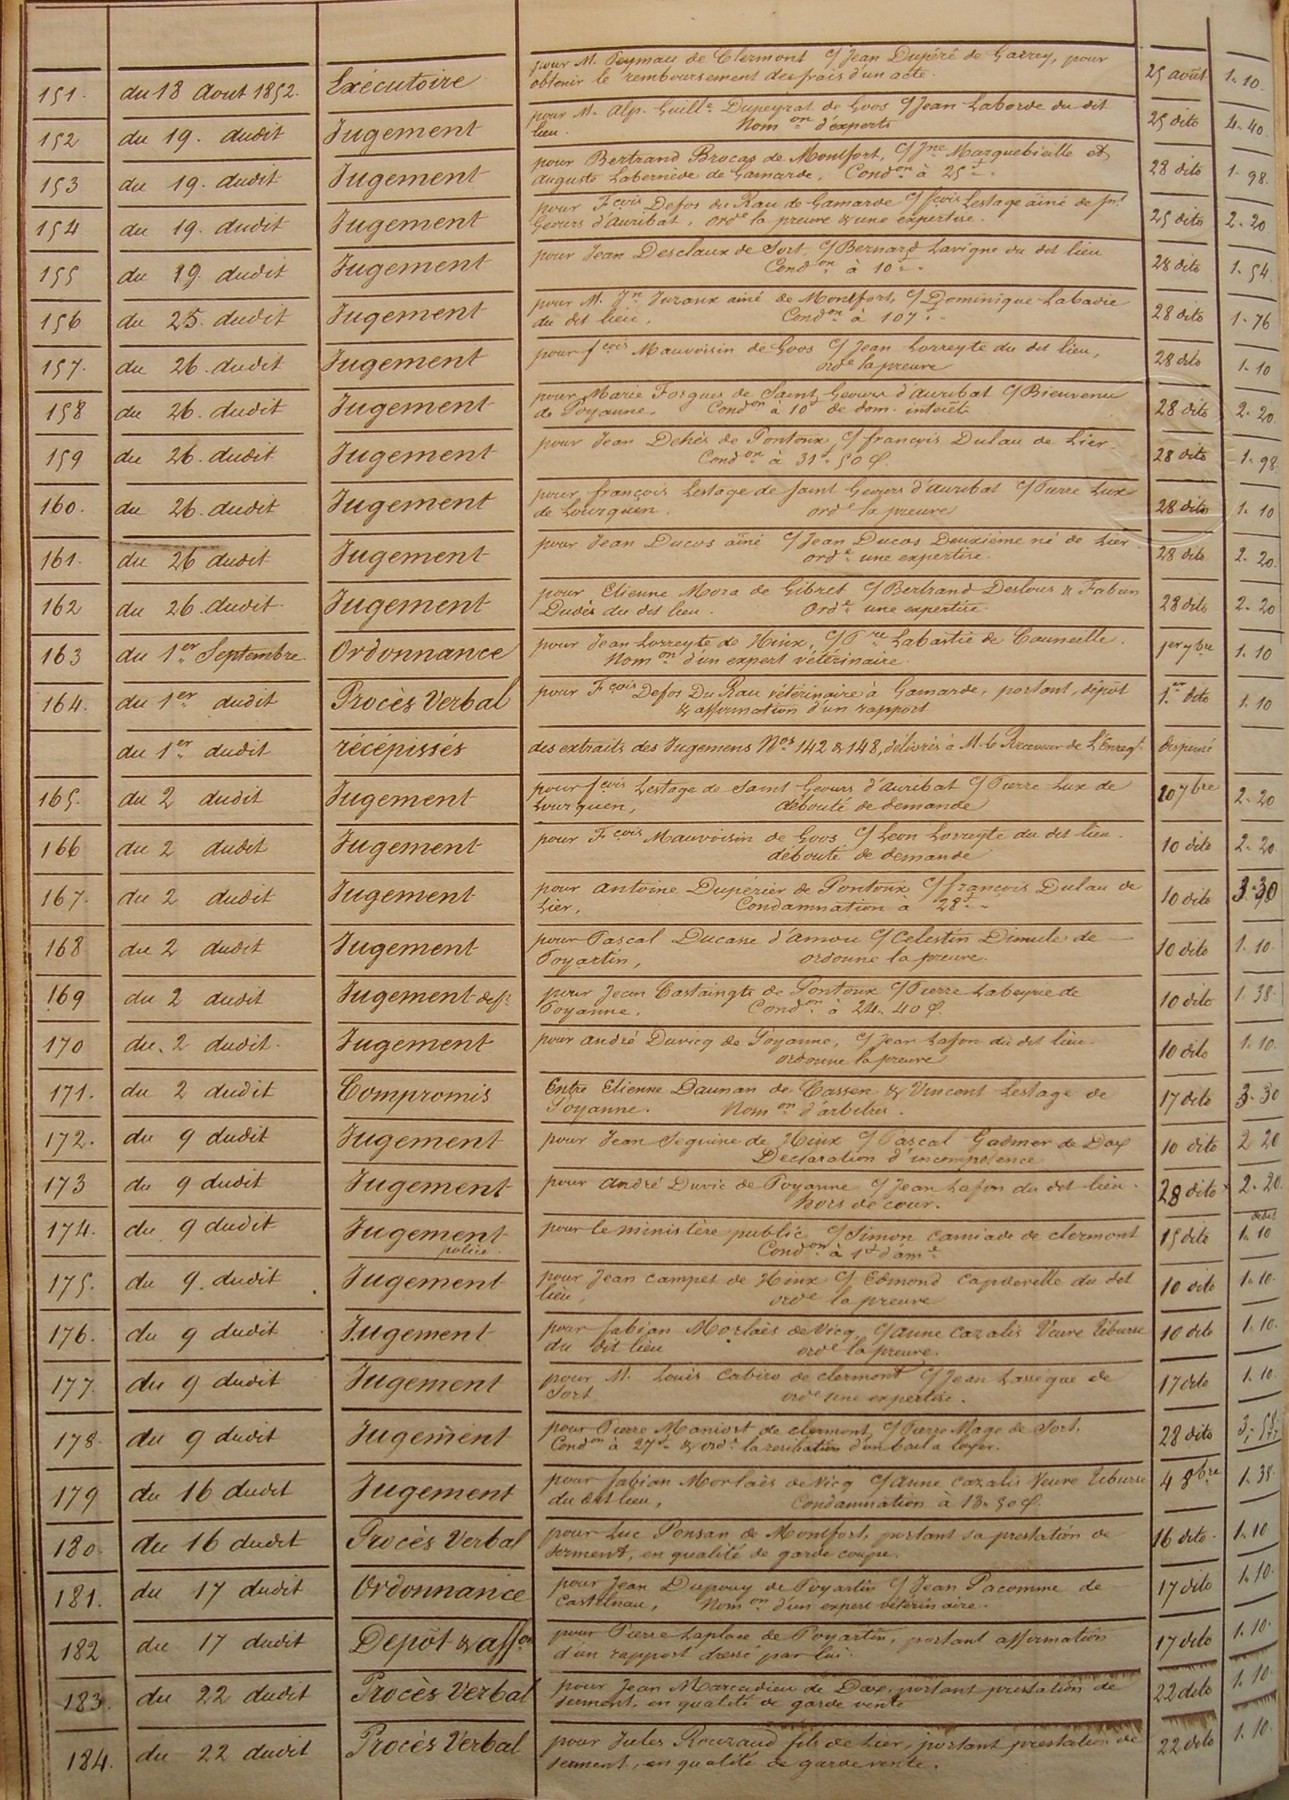 pour M. Peyman de Clermont c/ Jean Dupéré de Garrey, pour
151. du 18 Aout 1852. Exécutoire obtenir le remboursement des frais d'un acte. 25 août 1. 10.
pour M. Alp. Guill.e Dupeyrat de Goos c/ Jean Laborde du dit
152 du 19. dudit Jugement lieu. Nom.on d'experts 25 dito 4. 40.
pour Bertrand Brocas de Montfort, c/ Jne Marquebielle et
153 du 19. dudit Jugement Auguste Labernède de Gamarde, Cond.on à 25f. 28 dito 1. 98.
pour Fçois Defos du Rau de Gamarde c/ fçois Lestage aîné de St
154 du 19. dudit Jugement Geours d'auribat, ord.e la preuve & une expertise. 25 dito 2. 20
pour Jean Desclaux de Sort, c/ Bernard Lavigne du dit lieu
155 du 19. dudit Jugement Cond.on à 10f. 28 dito 1. 54.
pour M. Jn Juraux ainé de Montfort, c/ Dominique Labadie
156 du 25. dudit Jugement du dit lieu, Cond.on à 107f. 28 dito 1. 76
pour fçois Mauvoisin de Goos c/ Jean Lorreyte du dit lieu,
157. du 26. dudit Jugement ord.e la preuve 28 dito 1. 10
pour Marie Forgues de Saint Geours d'auribat c/ Bienvenu
158 du 26. dudit Jugement de Poyanne. Cond.on à 10f de dom. interêts 28 dito 2. 20
pour Jean Dehès de Pontonx, c/ françois Dulau de Lier
159 du 26. dudit Jugement Cond.on à 31f. 50 c. 28 dito 1. 98
pour françois Lestage de Saint Geours d'auribat c/ Pierre Lux
160. du 26. dudit Jugement de Lourquen. ord.e la preuve 28 dito 1. 10
pour Jean Ducos aîné c/ Jean Ducos Deuxième né de Lier
161. du 26 dudit Jugement ord.e une expertise. 28 dito 2. 20.
pour Etienne Mora de Gibret c/ Bertrand Deslous & Fabien
162 du 26. dudit Jugement Dudès du dit lieu. Ord.e une expertise. 28 dito 2. 20
pour Jean Lorreyte de Hinx, c/ Pre Labastie de Cauneille.
163 du 1er Septembre Ordonnance Nom.on d'un expert vétérinaire 1er 7bre 1. 10
pour Fçois Defos Du Rau vétérinaire à Gamarde, portant, dépôt
164. du 1er dudit Procès Verbal & affirmation d'un rapport 1.er dito 1. 10
du 1er dudit récépissés des extraits des Jugemens Nos 142 & 148, délivrés à M. le Receveur de L'Enregt. dispensé
pour fçois Lestage de Saint Geours d'auribat c/ Pierre Lux de
165. du 2 dudit Jugement Lourquen, débouté de demande 10 7bre 2. 20
pour Fçois Mauvoisin de Goos c/ Léon Lorreyte du dit lieu.
166 du 2 dudit Jugement débouté de demande 10 dito 2. 20
pour antoine Dupérier de Pontonx c/ françois Dulau de
167. du 2 dudit Jugement Lier, Condamnation à 28f. 10 dito 3. 30
pour Pascal Ducasse d'amou c/ Celestin Dimule de
168 du 2 dudit Jugement Poyartin, ordonne la preuve. 10 dito 1. 10.
pour Jean Castaingts de Pontonx c/ Pierre Labeyrie de
169 du 2 dudit Jugement deff.t Poyanne. Cond.on à 24. 40 c. 10 dito 1. 38.
pour andré Duvicq de Poyanne, c/ Jean Lafon du dit lieu.
170 du 2 dudit. Jugement ordonne la preuve 10 dito 1. 10.
Entre Etienne Daunan de Cassen & Vincent Lestage de
171. du 2 dudit Compromis Poyanne. Nom.on d'arbitres. 17 dito 3. 30
pour Jean Seguine de Hinx c/ Pascal Gadmer de Dax
172. du 9 dudit Jugement Declaration d'incompétence 10 dito 2 20
pour andré Duvic de Poyanne c/ Jean Lafon du dit lieu.
173 du 9 dudit Jugement hors de cour. 28 dito 2. 20
pour le ministère public c/ Simon Camiade de clermont débit
174. du 9 dudit Jugement police Cond.on à 1f d'am.e 15 dito 1. 10
pour Jean Campet de Hinx c/ Edmond Capdeville du dit
175. du 9. dudit Jugement lieu, ord.e la preuve 10 dito 1. 10.
pour fabian Morlaès de Vicq, c/ anne Cazalis Veuve Tiburse
176. du 9 dudit Jugement du dit lieu ord.e la preuve. 10 dito 1. 10.
pour M. Louis Cabiro de clermont c/ Jean Lassegue de
177. du 9 dudit Jugement Sort. ord.e une expertise. 17 dito 1. 10.
pour Pierre Maniort de clermont, c/ Pierre Mage de Sort,
178. du 9 dudit Jugement Cond.on à 27f. & ord.e la resiliation d'un bail a loyer. 28 dito
pour fabian Morlaès de Vicq c/ anne Cazalis Veuve Tiburse
179 du 16 dudit Jugement du dit lieu, Condamnation à 13. 50 c. 4 8bre 1. 38.
pour Luc Ponsan de Montfort, portant sa prestation de
180. du 16 dudit Procès Verbal serment, en qualité de garde coupe. 16 dito. 1. 10
pour Jean Dupouy de Poyartin c/ Jean Pacomme de
181. du 17 dudit Ordonnance Castelnau, Nom.on d'un expert vétérinaire. 17 dito 1. 10.
pour Pierre Laplace de Poyartin, portant affirmation
182 du 17 dudit Dépôt & aff.on d'un rapport dressé par lui. 17 dito 1. 10.
pour Jean Marcadieu de Dax, portant prestation de
183. du 22 dudit Procès Verbal serment, en qualité de garde vente 22 dito 1. 10.
pour Jules Rouzaud fils de Lier, portant prestation de
184. du 22 dudit Procès Verbal serment, en qualité de garde vente. 22 dito 1. 10.